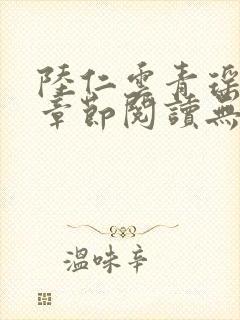 陸仁雲青瑶
章節閱讀無
溫味辛